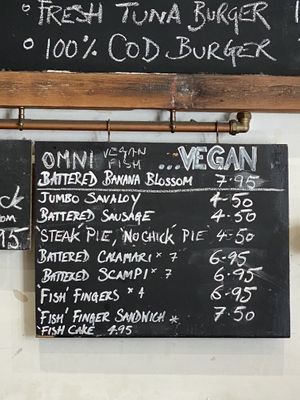 ° FRESH TUNA BURGER
° 100% COD BURGER
OMNI VEGAN FISH ...VEGAN
BATTERED BANANA BLOSSOM 7.95
JUMBO SAVALOY 4.50
BATTERED SAUSAGE 4.50
'STEAK' PIE, 'NO CHICK' PIE 4.50
BATTERED CALAMARI × 7 6.95
BATTERED SCAMPI × 7 6.95
'FISH' FINGERS × 4 6.95
'FISH' FINGER SANDWICH * 7.50
'FISH CAKE 4.95